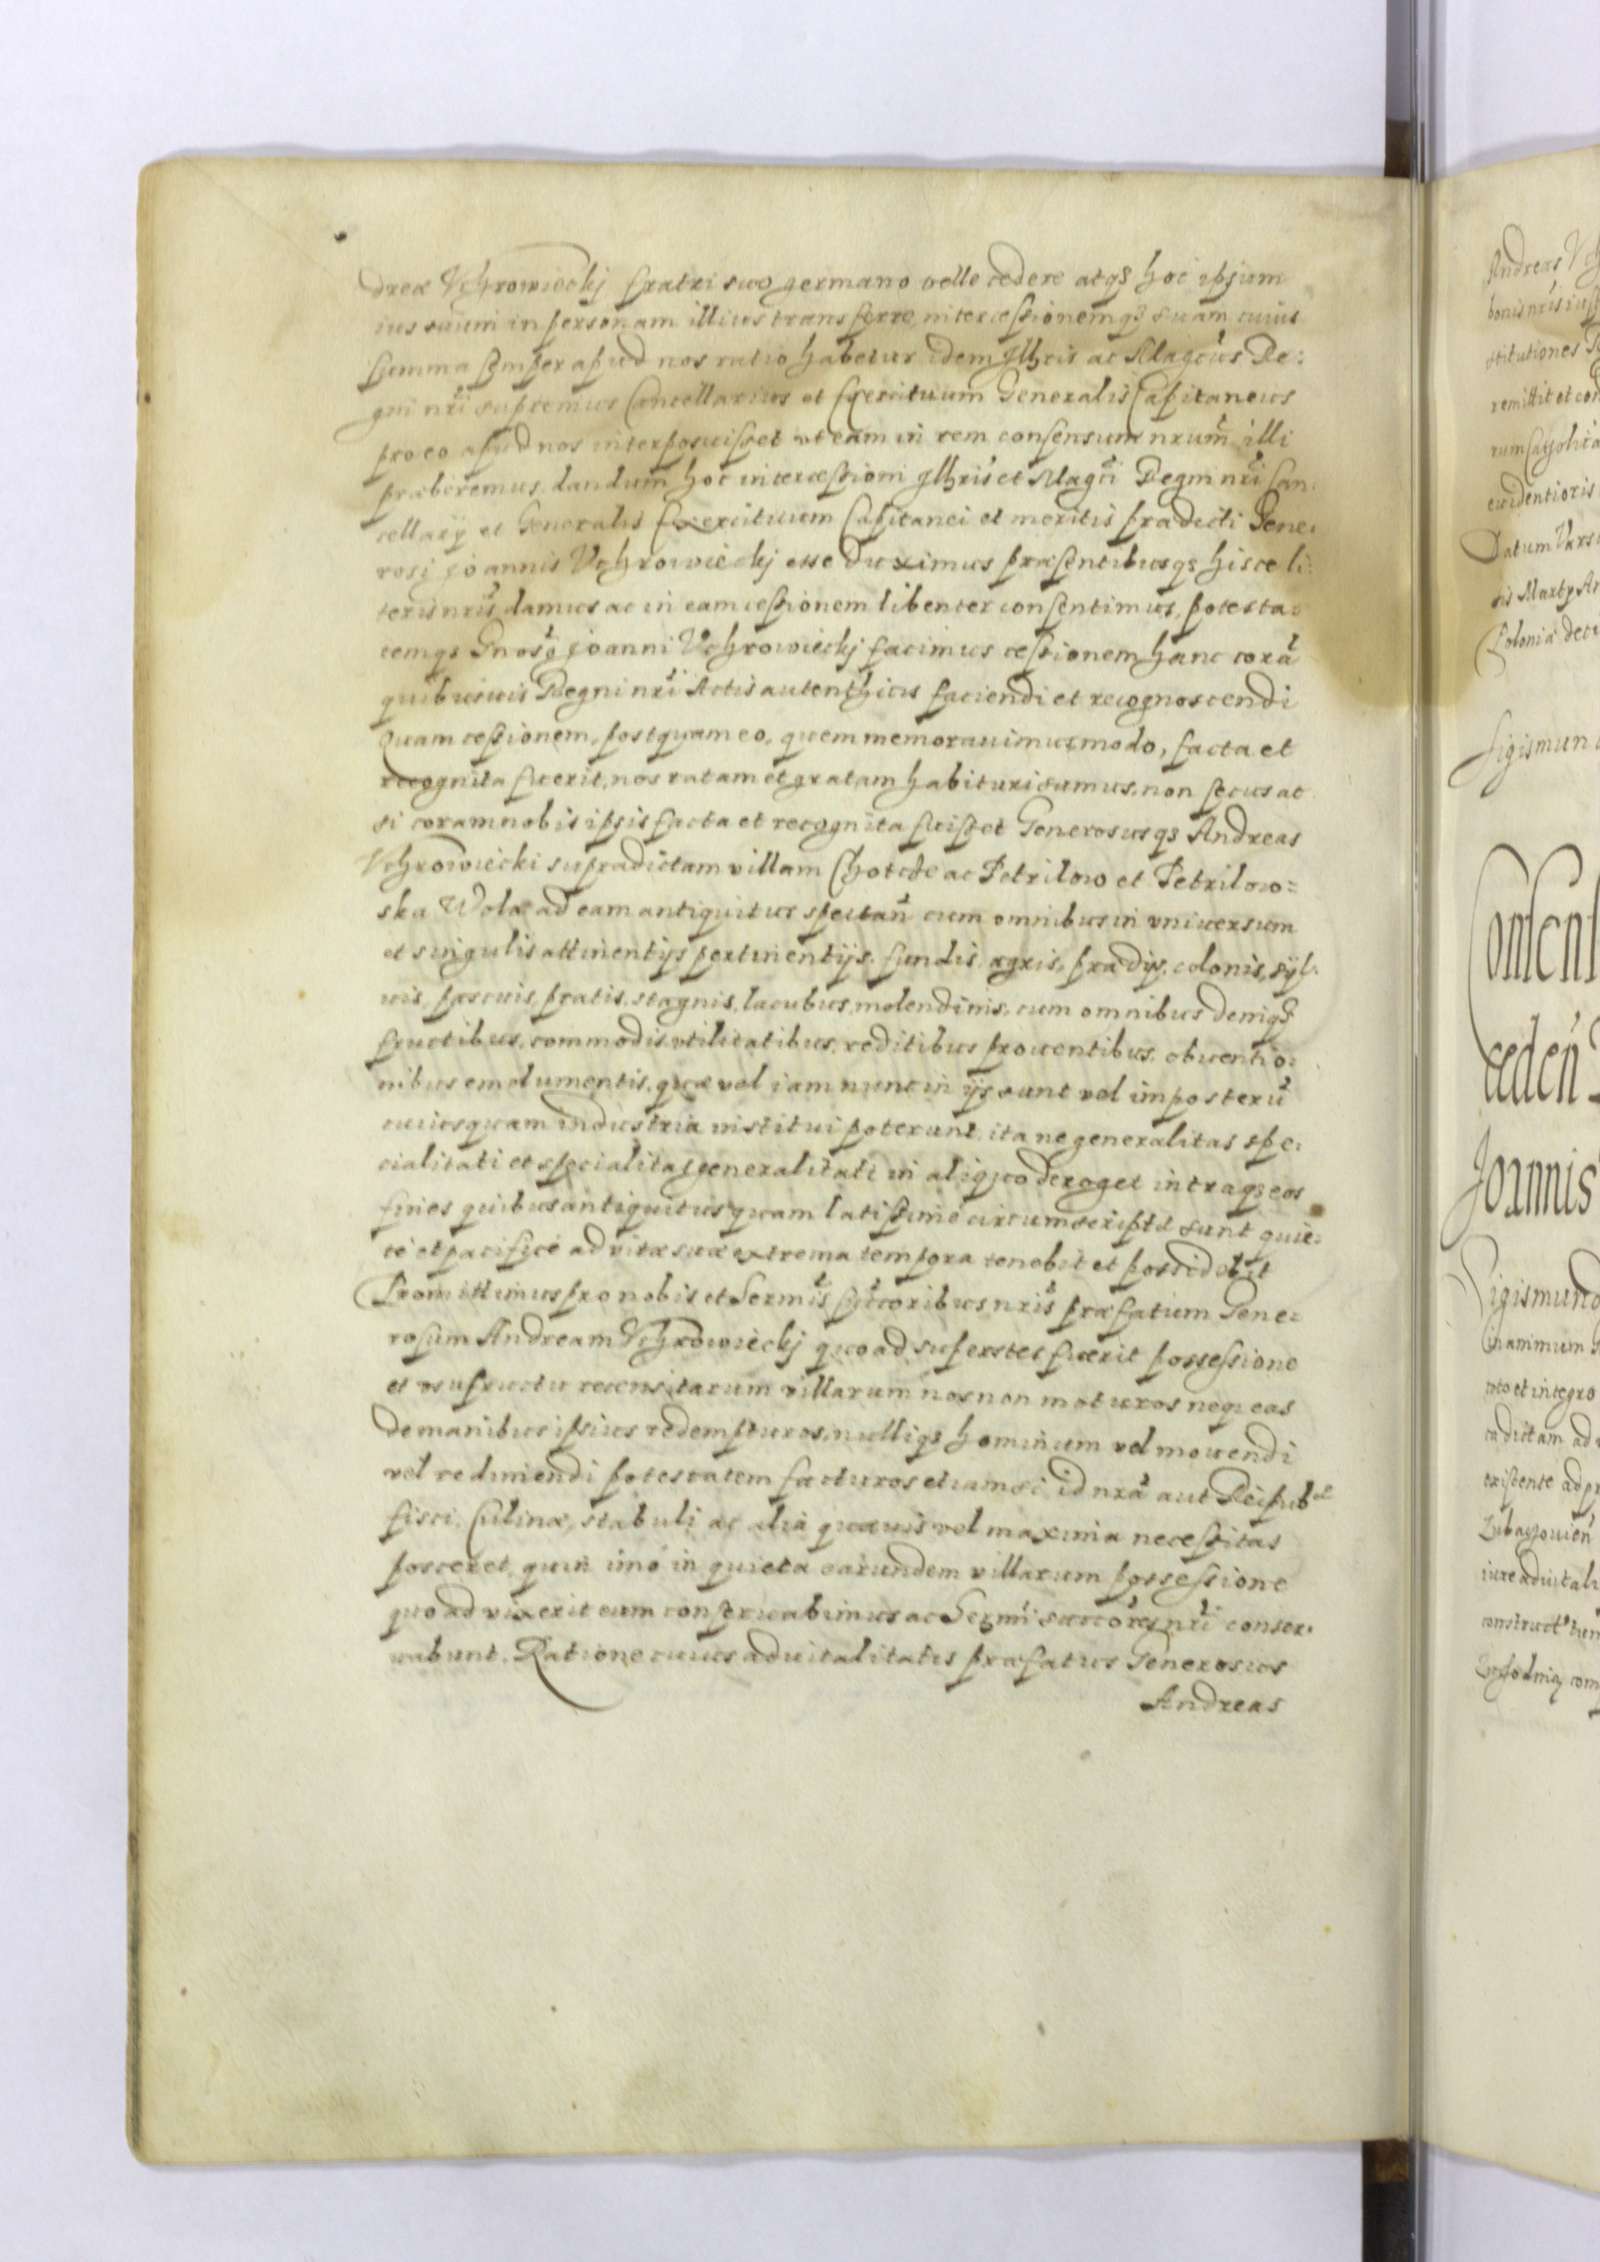 dreæ Vchrowieckj fratri suo germano velle cedere atq3 hoc ipsum
ius suum in personam illius transferre, intercessionemq3 suam cuius
summa semper apud nos ratio habetur idem Illtris ac Magcus Re:
gni nri supremus Cancellarius et Exercituum Generalis Capitaneus
pro eo apud nos interposuisset ut eam in rem consensum nrum illi
præberemus, dandum hoc intercessioni Illtris et Magci Regni nri Can:
cellarÿ et Generalis Exercituum Capitanei et meritis prædicti Gene:
rosi Joannis Vchrowieckj esse duximus præsentibusq3 hisce li:
teris nris damus ac in eam cessionem libenter consentimus, potesta:
temq3 Gnoso Joanni Vchrowieckj facimus cessionem hanc corã
quibusuis Regni nri Actis autenthicis faciendi et recognoscendi
Quam cessionem, postquam eo, quem memorauimus modo, facta et
recognita fuerit, nos ratam et gratam habituri sumus, non secus ac
si coram nobis ipsis facta et recognita fuisset Generosusq3 Andreas
Vchrowiecki supradictam villam Chotcze ac Petrilow et Petrilow=
ska Wolæ ad eam antiquitus spectañ cum omnibus in vniuersum
et singulis attinentijs pertinentijs, fundis, agris, prædijs, colonis, syl:
uis, pascuis, pratis, stagnis, lacubus, molendinis, cum omnibus deniq3
fructibus, commodis, vtilitatibus, reditibus, prouentibus, obuentio:
nibus emolumentis, quæ vel iam nunc in ijs sunt vel imposterũ
cuiusquam industria institui poterunt, ita ne generalitas spe:
cialitati et specialitas generalitati in aliquo deroget intraq3 eos
fines quibus antiquitus quam latissimè circumscriptæ sunt quie:
tè et pacificè ad vitæ suæ extrema tempora tenebit et possidebit
Promittimus pro nobis et Sermis succoribus nris præfatum Gene:
rosum Andream Vchrowieckj quoad superstes fuerit possessione
et vsufructu recensitarum villarum nos non moturos neq3 eas
de manibus ipsius redempturos, nulliq3 hominum vel mouendi
vel redimendi potestatem facturos etiamsi id nra aut Reipub:
fisci, Culinæ, stabuli ac alia quæuis vel maxima necessitas
posceret, quin imò in quieta earundem villarum possessione
quoad vixerit eum conseruabimus ac Sermi succores nri conser:
uabunt. Ratione cuius aduitalitatis præfatus Generosus
Andreas
Andreas Vch
bonis nris
stitutiones
remittit et con
rum Catholica
euidentioris
Datum Vars
sis Martÿ An
Poloniæ
Sigismun
Consens
cedeñ
Joannis
Sigismund
toto et integro
existente ad
iure aduitali